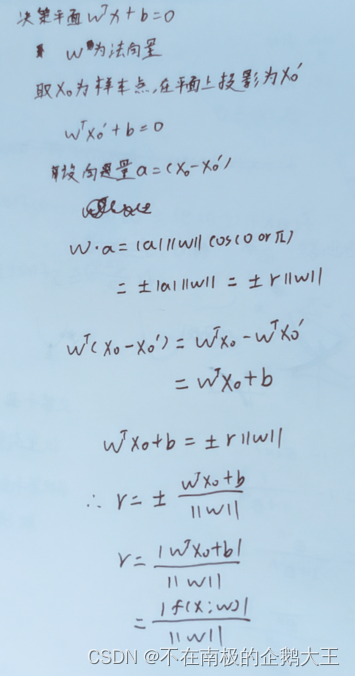 决策平面 wᵀx+b=0
w 为法向量
取x₀为样本点,在平面上投影为x₀′
wᵀx₀′+b=0
设向量a=(x₀-x₀′)
w·a=|a|||w||cos(0 or π)
=±|a|||w||=±r||w||
wᵀ(x₀-x₀′)=wᵀx₀-wᵀx₀′
=wᵀx₀+b
wᵀx₀+b=±r||w||
∴ r=± (wᵀx₀+b)/||w||
r=|wᵀx₀+b|/||w||
=|f(x;w)|/||w||
CSDN @不在南极的企鹅大王